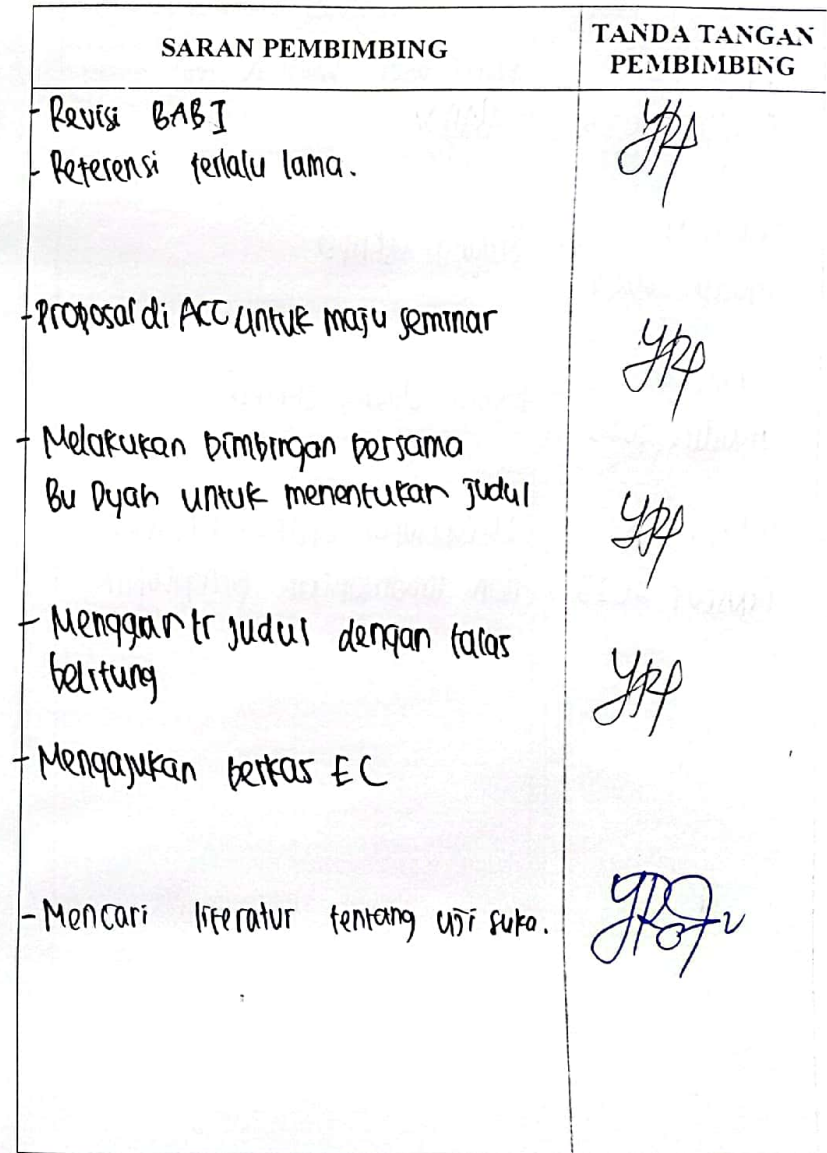 SARAN PEMBIMBING
TANDA TANGAN
PEMBIMBING
- Revisi BAB I
- Referensi terlalu lama.
- Proposal di ACC untuk maju seminar
- Melakukan bimbingan bersama
Bu Dyah untuk menentukan judul
- Mengganti judul dengan talas
belitung
- Mengajukan berkas EC
- Mencari literatur tentang uji suka.